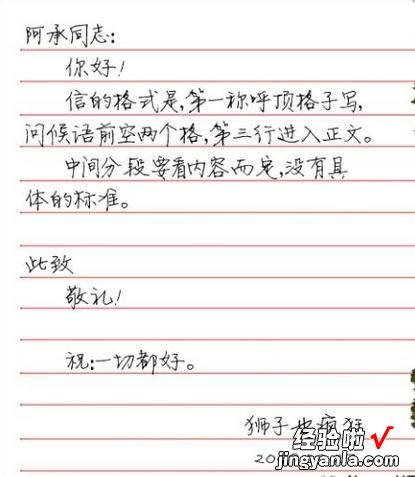 阿承同志:
你好!
信的格式是,第一称呼顶格子写,
问候语前空两个格,第三行进入正文。
中间分段要看内容而定,没有具
体的标准。
此致
敬礼!
祝:一切都好。
狮子也疯狂
20
经验啦√
jingyanla.com